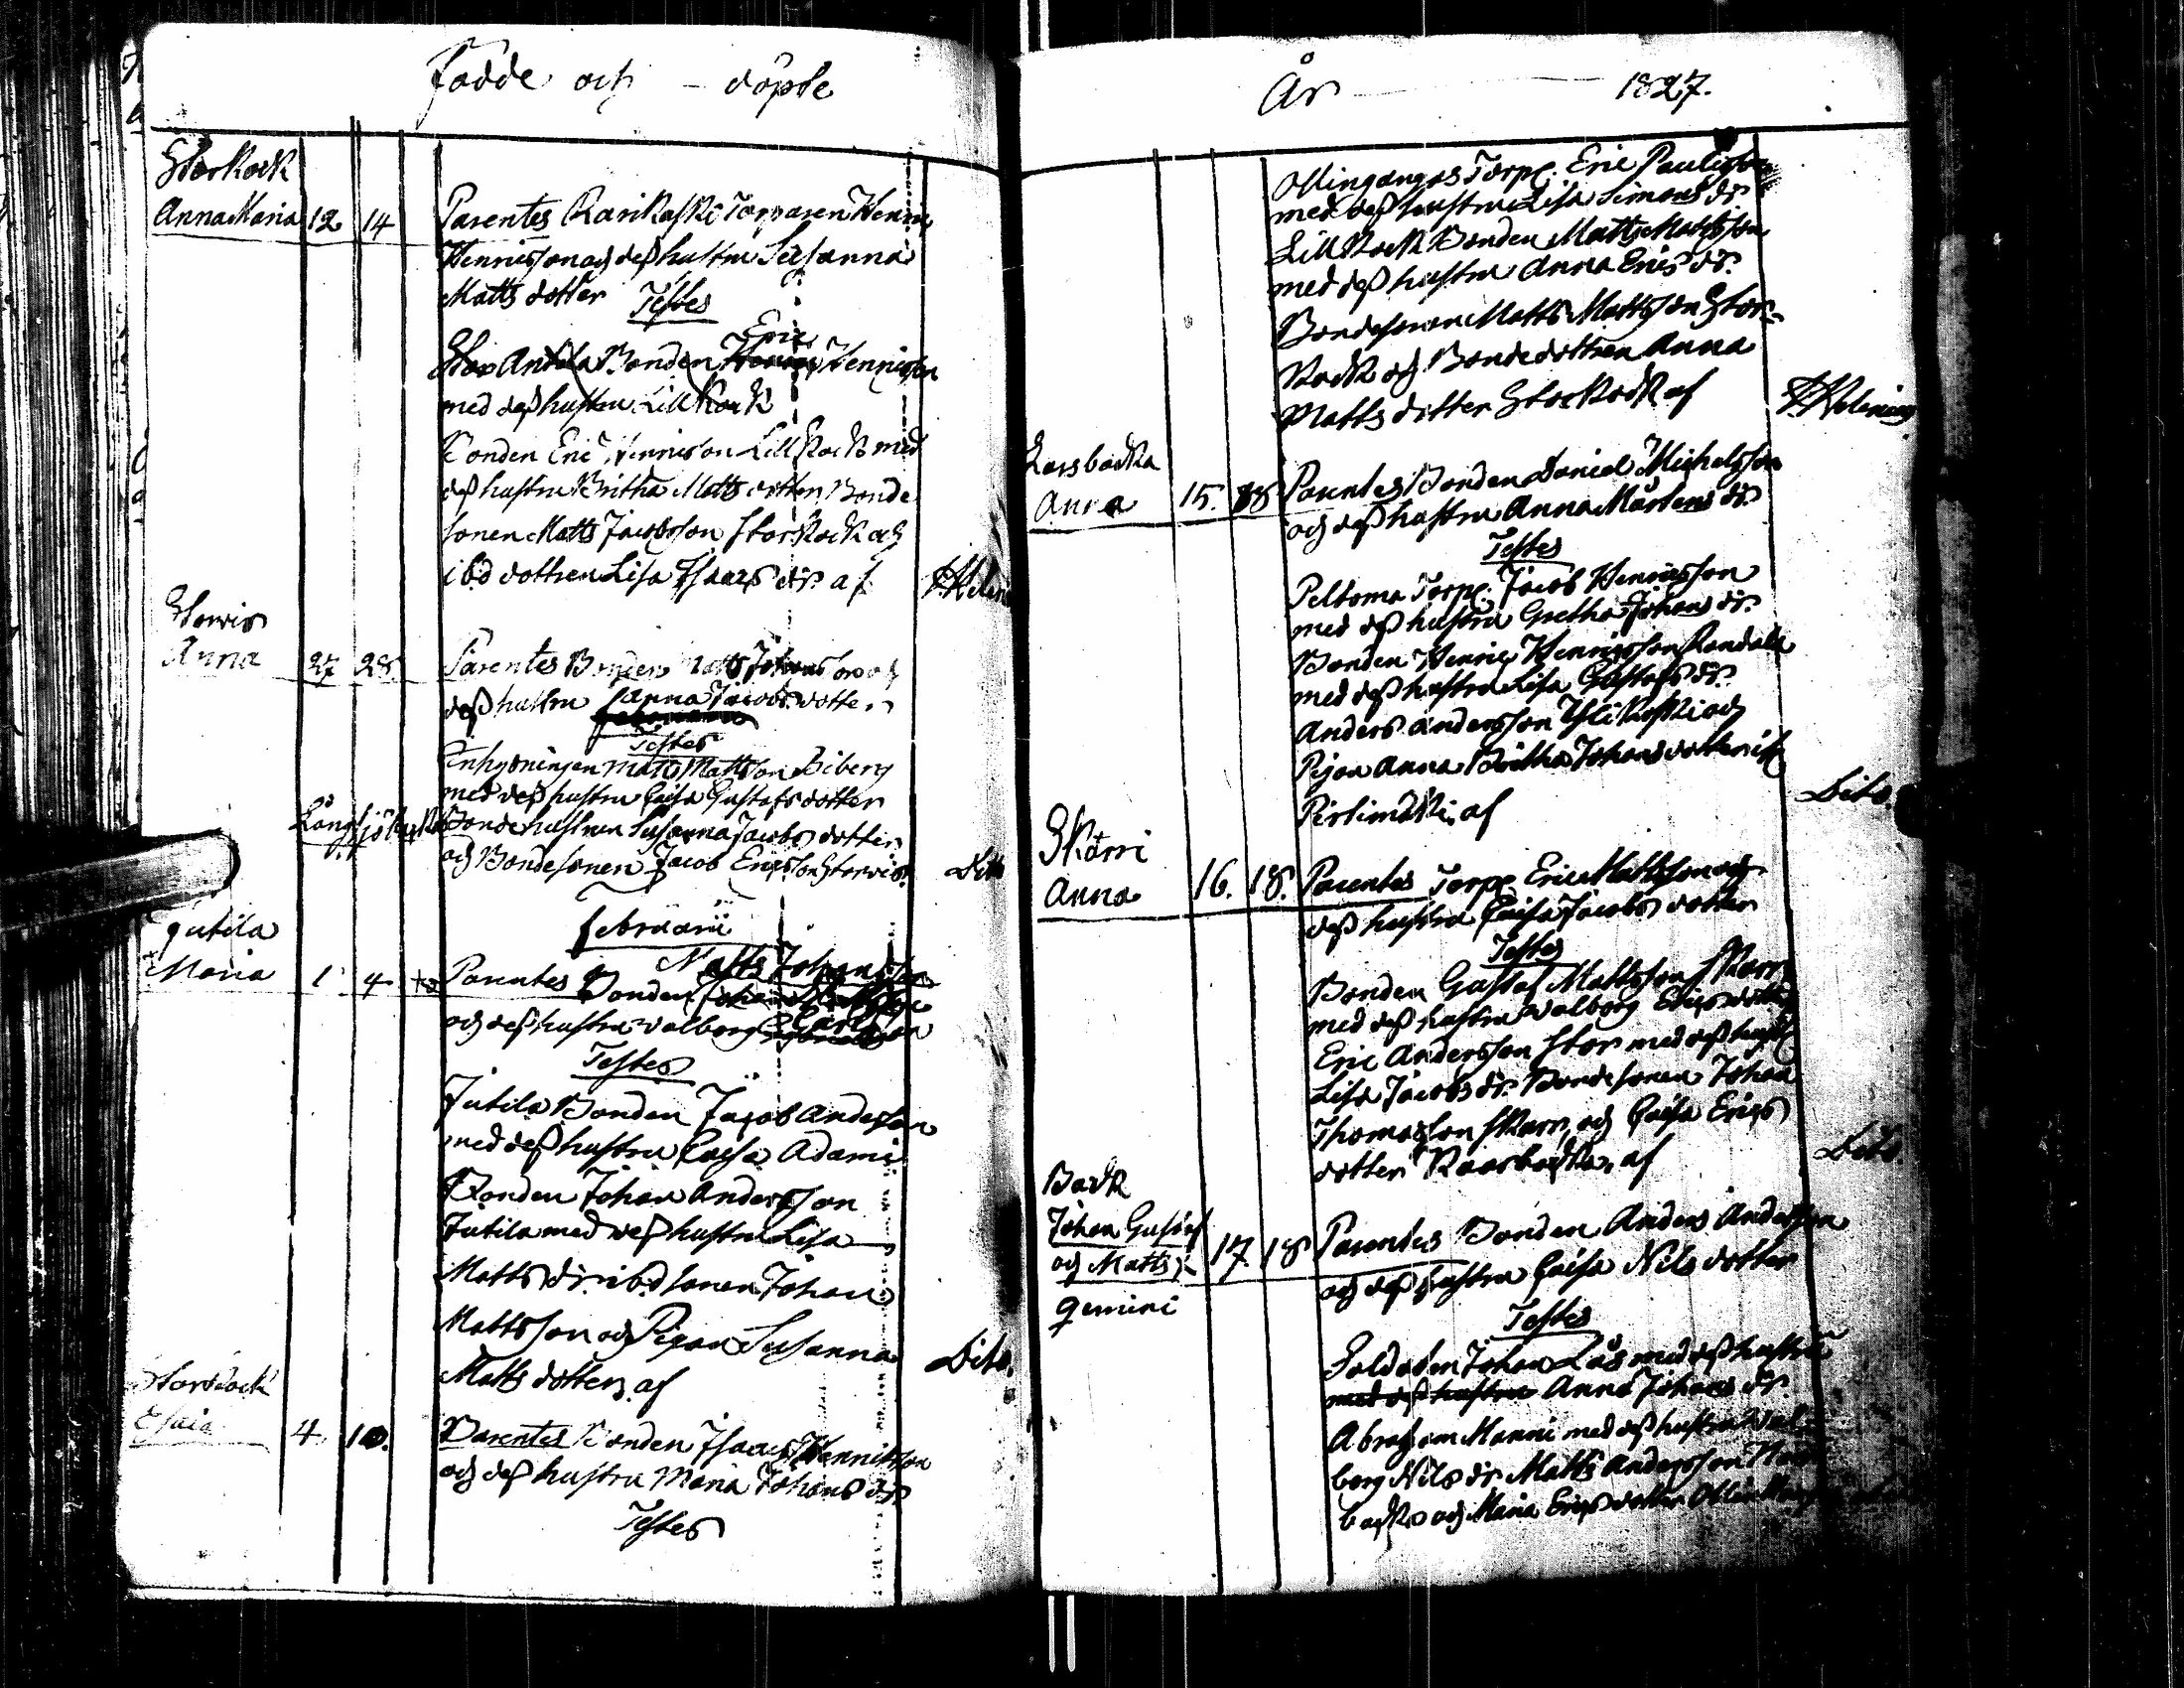 Födde och - döpte
Storkock
Anna Maria 12 14 Parentes Rankoski Torparen Henric
Henricsson och dess hustru Susanna
Matts dotter Testes
Eric
Stor Antila Bonden Henric Henricsson
med dess hustru Lill Kock
Bonden Eric Henricson Lill Kock med
dess hustru Britha Matts dotter Bonde
sonen Matts Jacobsson Storkock och
ibd dottren Lisa Isaacs dr. af
Storvis
Anna 27 28 Parentes Bonden Matts Johansson och
dess hustru Anna Jacobs dotter
Testes
Inhysningen Matts Mattsson Biberg
med dess hustru Caisa Gustafs dotter
Långsjöbacka Bondehustrun Susanna Jacobs dotter
och Bondesonen Jacob Ericsson Storvis Dito
Februarii
Jutila Matts Johansson
Maria 1 4 Parentes Bonden
och dess hustru Valborg
Testes
Jutila Bonden Jacob Andersson
med dess hustru Caisa Adami
Bonden Johan Andersson
Jutila med dess hustru Lisa
Matts dr. ibd sonen Johan
Mattsson och Pigan Susanna
Matts dotter, af Dito.
Storkock
Esaia 4 10. Parentes Bonden Isaac Henricsson
och dess hustru Maria Johans dr
Testes
År 1827.
Ollingangas Torp. Eric Paulisson
med dess hustru Lisa Simons dr
Lill Kock Bonden Matts Mattsson
med dess hustru Anna Erics dr.
Bondesonen Matts Mattsson Stor-
Kock och Bondedottren Anna
Matts dotter Storkock af
Korsbacka
Anna 15. 18 Parentes Bonden Daniel Michelsson
och dess hustru Anna Mårtens dr.
Testes
Peltoma Torp. Jacob Henricsson
med dess hustru Gretha Johans dr.
Bonden Henric Henricsson Randala
med dess hustru Lisa Gustafs dr.
Anders Andersson Yli Koski och
Pigan Anna Britha Johans dotter
af Dito.
Skarri
Anna 16. 18. Parentes Torp. Eric Mattsson och
dess hustru Caisa Jacobs dotter
Testes
Bonden Gustaf Mattsson Skarri
med dess hustru Valborg Erics dotter
Eric Andersson Stor med dess hust
Lisa Jacobs dr. Bondesonen Johan
Thomasson Skarri, och Caisa Erics
dotter Korsbacka, af Dito.
Back
Johan Gustaf
och Matts 17. 18 Parentes Bonden Anders Andersson
gemini och dess hustru Caisa Nils dotter
Testes
Soldaten Johan Lås med dess hustru
med dess hustru Anna Johans dr.
Abraham Manni med dess hustru Val-
borg Nils dr Matts Andersson
backa och Maria Erics dotter